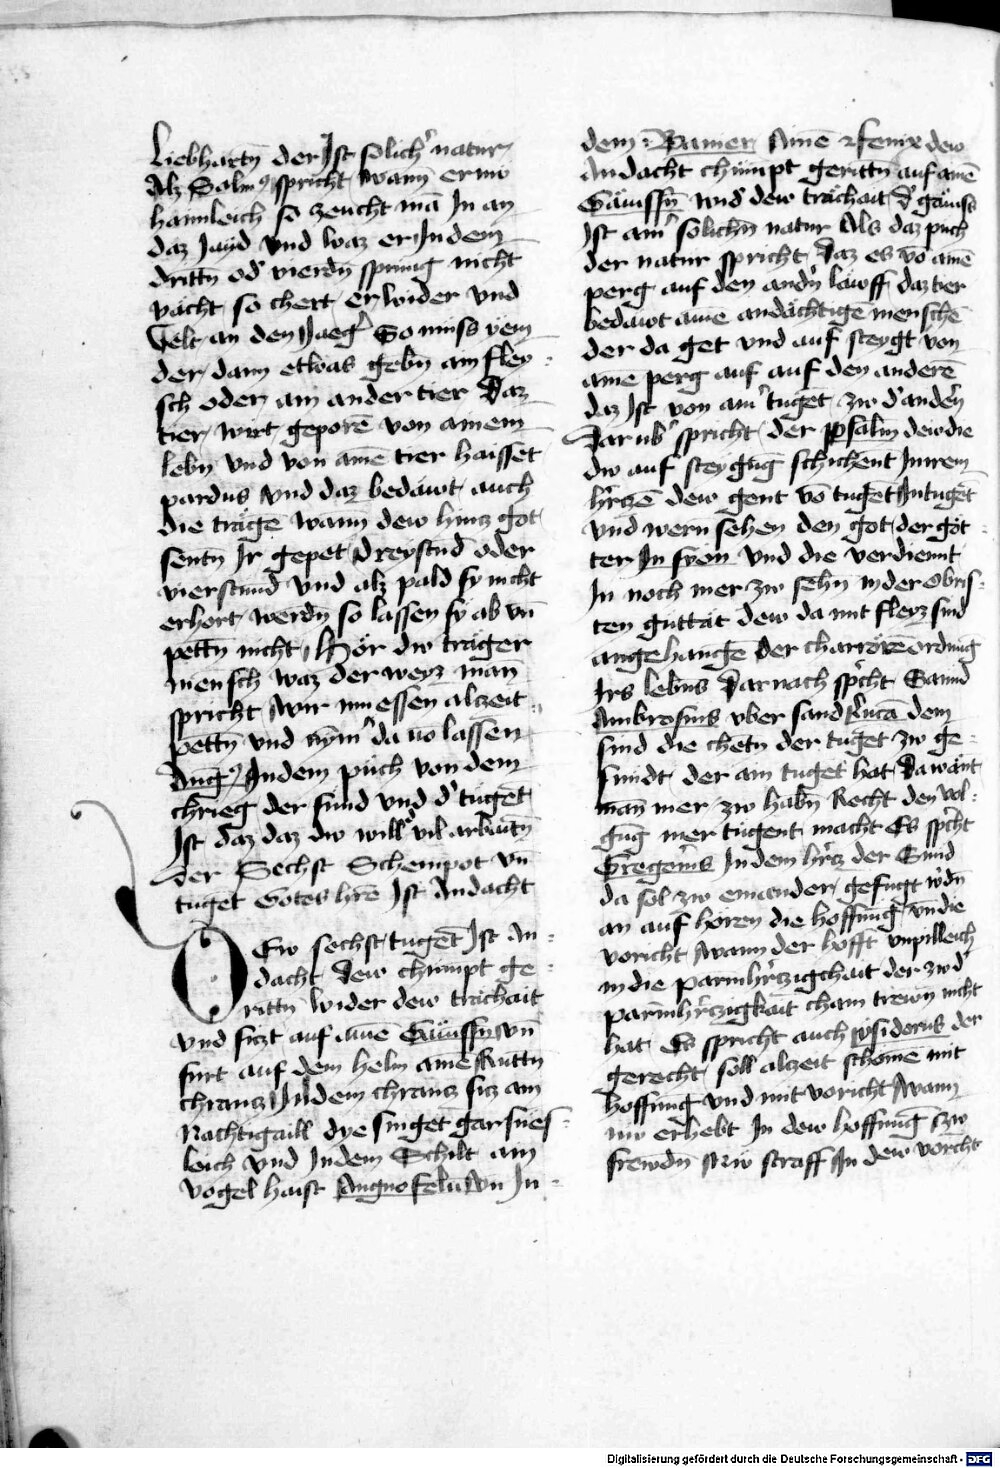 Liebhartn̄ der Ist solich' natur
Alz Solin9 spricht wann er nu
haimleich so zeucht mā In an
daz Jayd vnd waz er In dem
drittn̄ od' vierdn̄ spring nicht
vacht so chert er wider vnd
velt an den Jaeg' So muss yem
der dann etwas gebn̄ am fley
sch oder am ander tier Daz
tier wirt geporē von ainem
lebn̄ vnd von amē tier haisset
pardus vnd daz bedawt auch
die trägē wann dew hincz got
sentn̄ Ir gepet Dreystūd oder
vierstund vnd alz pald sy nicht
erhort werdn̄ so lassen sy ab vn̄
pettn̄ nicht Hör dw träger
mensch waz der weyz man̄
spricht wir muessen alczeit
pettn̄ vnd nȳm' da uo lassen
Aug9 In dem puch von dem
chrieg der sund vnd d' tugēt
Ist daz daz dw will' vil arbaitn̄
der Sechst Schempot vn̄
tugēt Gotes hrē Ist Andacht
DEw sechst tugēt Ist An
dacht Dew chumpt ge
rittn̄ wider dew trächait
vnd siczt auf ainē Gäinssn̄ vn̄
fürt auf dem helm ainē Ruttn̄
chrancz In dem chrancz siz am
Nachtigaill dye singet gar sues
leich vnd In dem Schilt am
vogel haist Augnofelū vn̄ In
dem Panier Ainē Fenix dew
Andacht chumpt gerittn̄ auf ainē
Gäinssn̄ wid' dew trächait D' gäinss
Ist aim' solichn̄ natur Als daz puch
der natur spricht Daz es vō ainē
perg auf den andn̄ lawff daz tier
bedawt aine andächtigē menschē
der da get vnd auf steygt von
ainē perg auf auf den anderē
daz Ist von aim' tugēt zw d' anden̄
Darub' spricht der psalm dew die
dw auf steygūg schickent In irem
h'rczē dew gent vō tugēt In tugēt
vnd wern sehen den got der göt
ter In syon vnd die verdiennt
In noch mer zw sehn̄ in der obris
ten guttät dew da mit fleyz sind
angehangē Der charrörē ordnūg
Irs lebn̄s Darnach sp'cht Sannd
Ambrosius vber sand Lucā dem
sind die chetn̄ der tugēt zw ge
sundt der ain tuget hat Da want
man mer zw habn̄ Recht den vol
gūg mer tugent macht Es sp'cht
Gregor'us In dem h'rcz der Sund
da sol zw einander gefugt w'dn̄
an auf hören die hoffnūg vn̄ die
voricht wann der hofft vnpilleich
in die parmh'rczigchait der zw d'
parmh'rczigkait cham trewn̄ nicht
hat Es spricht auch ysiderus der
gerecht soll alczeit schonnē mit
hoffnūg vnd mit voricht wann
nw erhebt In dew hoffnūg czw
frewdn̄ Nw straff In dew vorcht
Digitalisierung gefördert durch die Deutsche Forschungsgemeinschaft - DFG